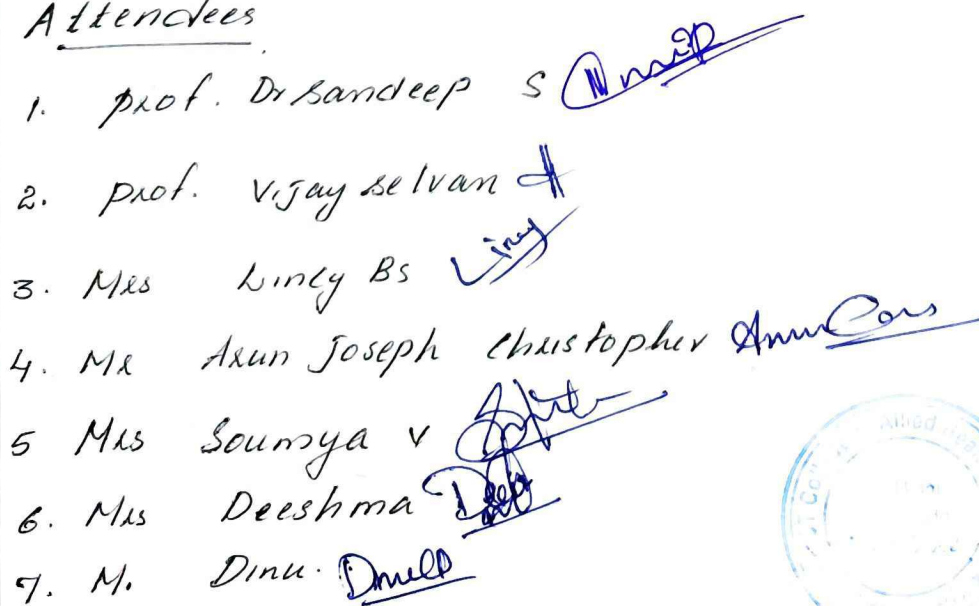 Attendees
1. Prof. Dr Sandeep S
2. Prof. Vijay Selvan
3. Mrs Lincy Bs
4. Mr Arun Joseph Christopher
5 Mrs Soumya V
6. Mrs Deeshma
7. M. Dinu.
Allied